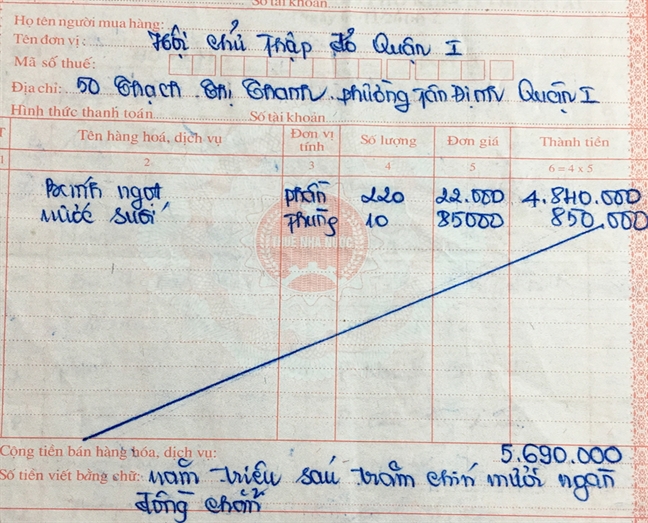 Số tài khoản
Họ tên người mua hàng:
Tên đơn vị: Hội chủ Thập đỏ Quận I
Mã số thuế:
Địa chỉ: 50 Thạch Thị Thanh phường Tân Định Quận I
Hình thức thanh toán Số tài khoản
T Tên hàng hoá, dịch vụ Đơn vị tính Số lượng Đơn giá Thành tiền
1 2 3 4 5 6 = 4 x 5
Bánh ngọt phần 220 22.000 4.840.000
nước suối thùng 10 85000 850.000
THUẾ NHÀ NƯỚC
Cộng tiền bán hàng hóa, dịch vụ: 5.690.000
Số tiền viết bằng chữ: năm triệu sáu trăm chín mươi ngàn
đồng chẵn